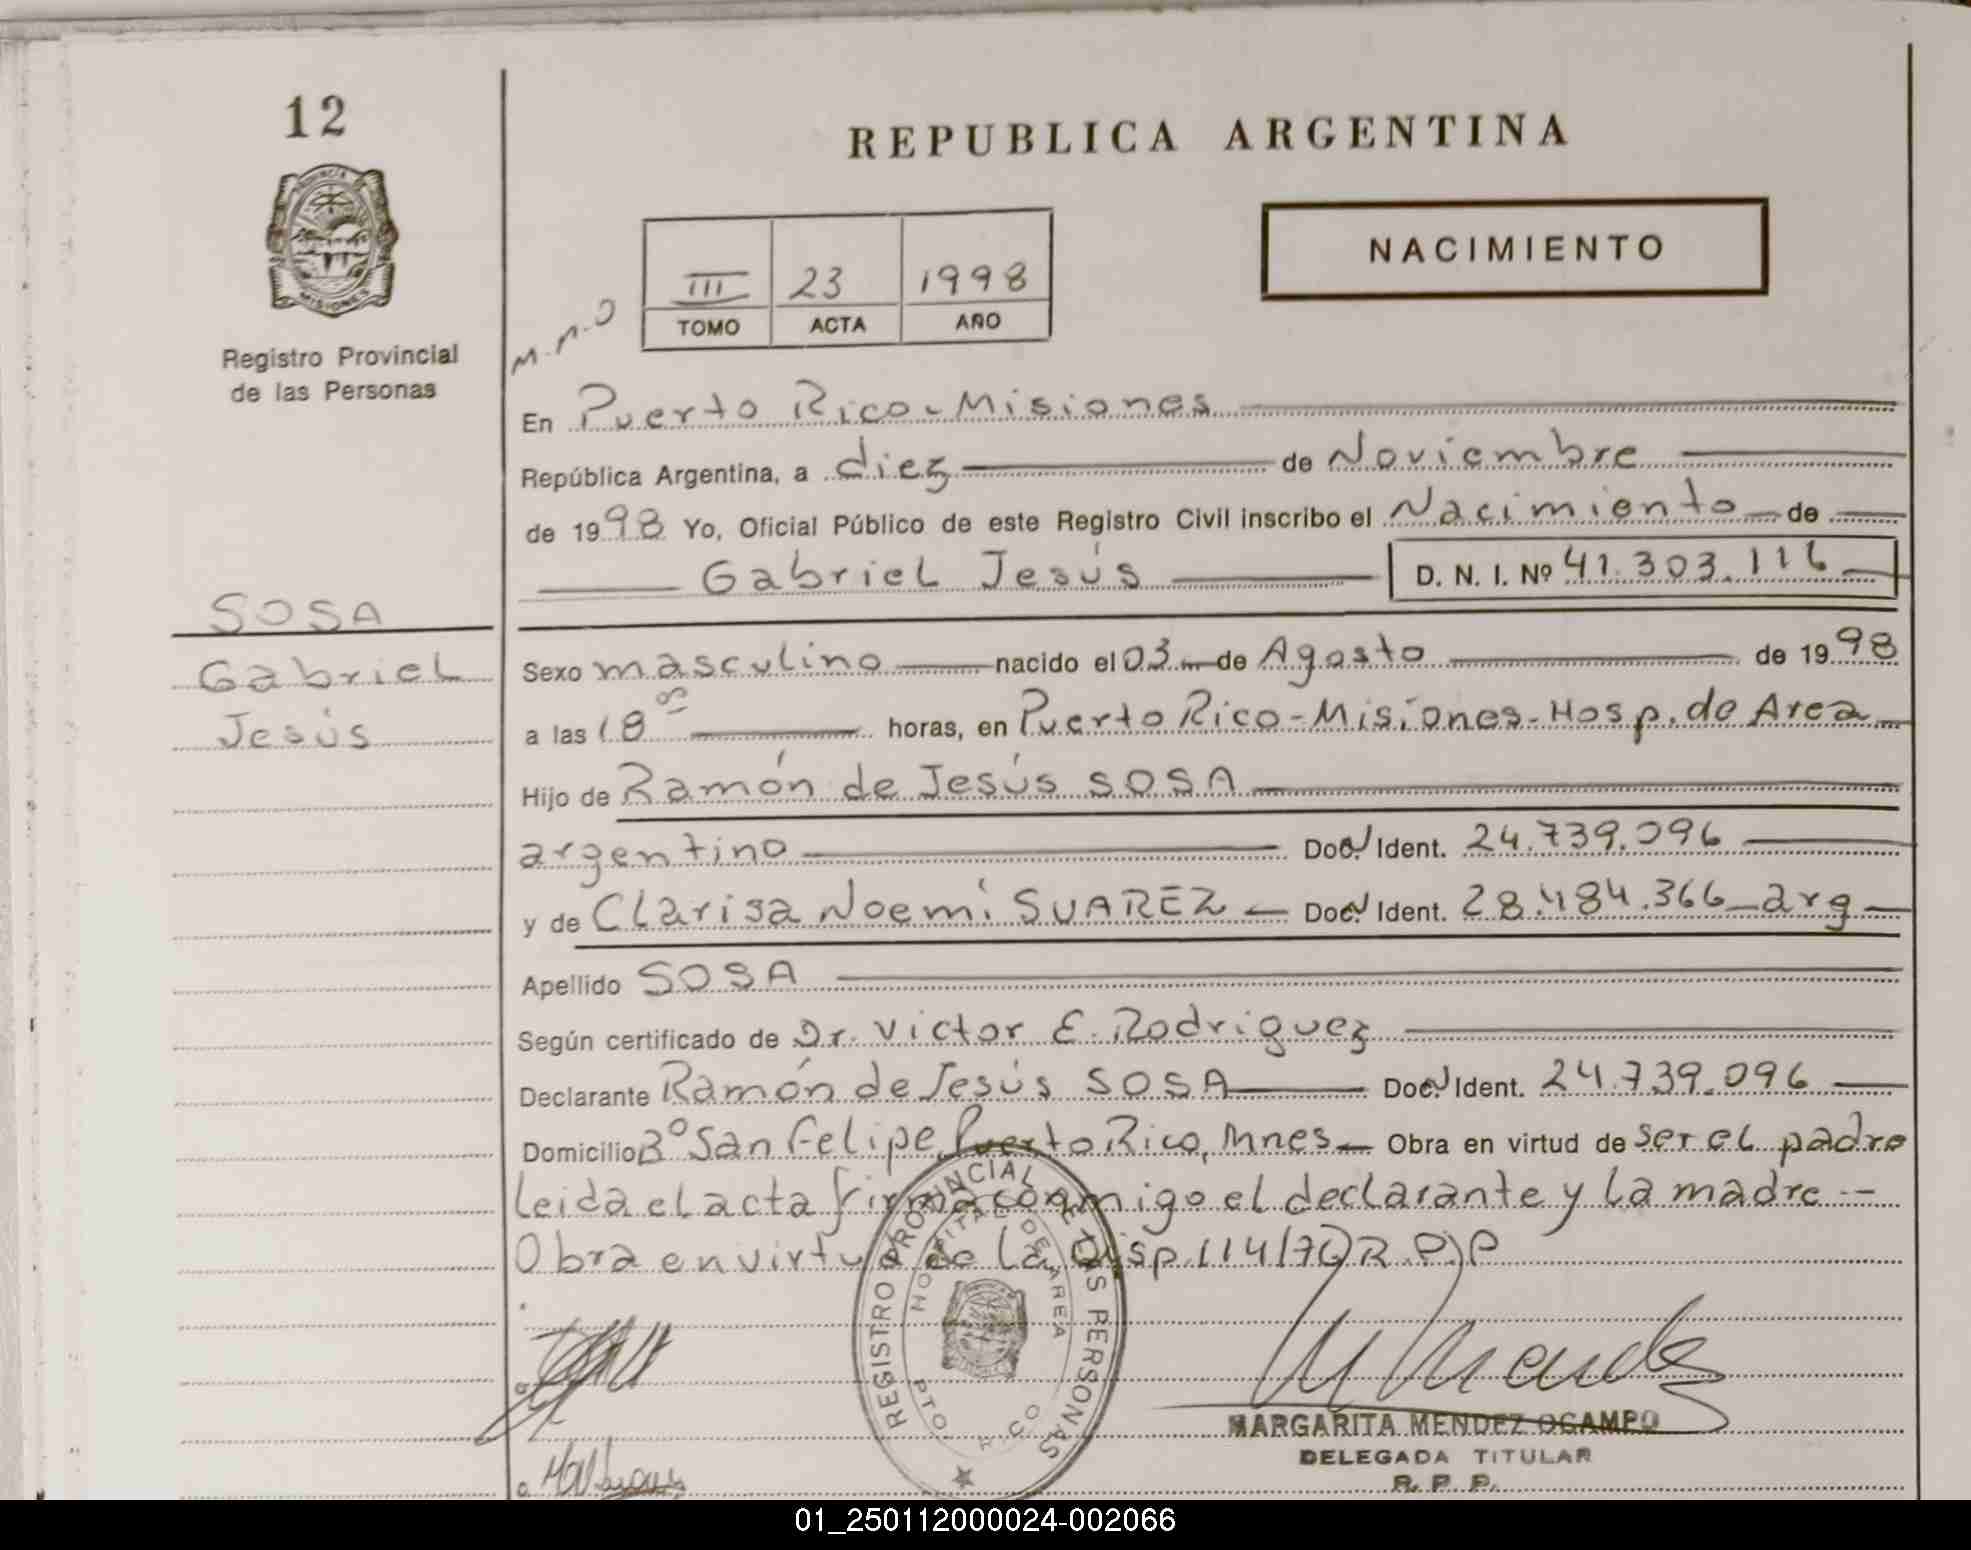 12
REPUBLICA ARGENTINA
NACIMIENTO
III 23 1998
TOMO ACTA AÑO
Registro Provincial
de las Personas
En Puerto Rico - Misiones
República Argentina, a diez de Noviembre
de 1998 Yo, Oficial Público de este Registro Civil inscribo el Nacimiento de
Gabriel Jesús D. N. I. Nº 41.303.116
SOSA
Gabriel
Jesús
Sexo masculino nacido el 03 de Agosto de 1998
a las 18 horas, en Puerto Rico - Misiones - Hosp. de Area
Hijo de Ramón de Jesús SOSA
argentino Doc. Ident. 24.739.096
y de Clarisa Noemí SUAREZ Doc. Ident. 28.484.366 - arg
Apellido SOSA
Según certificado de Dr. Victor E. Rodriguez
Declarante Ramón de Jesús SOSA Doc. Ident. 24.739.096
Domicilio Bº San Felipe, Puerto Rico, Mnes - Obra en virtud de ser el padre
leida el acta firma conmigo el declarante y la madre -
Obra en virtud de la Disp. 114/70 R.P.P
REGISTRO PROVINCIAL DE LAS PERSONAS
HOSPITAL DE AREA
PTO. RICO
MARGARITA MENDEZ OCAMPO
DELEGADA TITULAR
R. P. P.
01_250112000024-002066